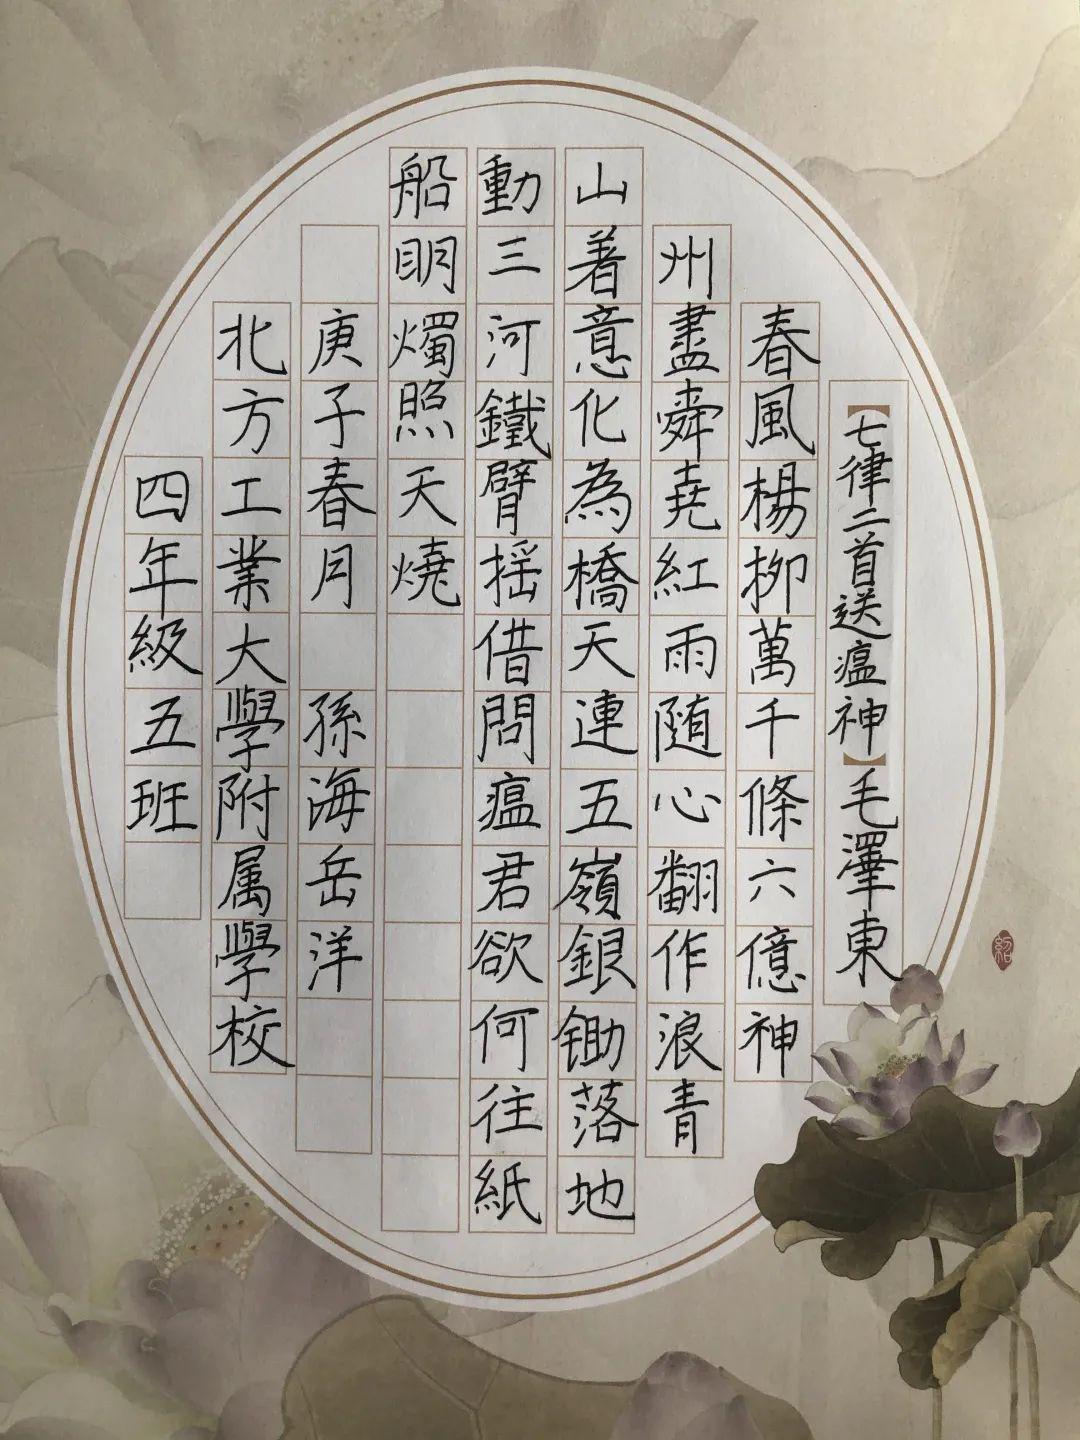 【七律二首送瘟神】毛澤東
春風楊柳萬千條六億神
州盡舜堯紅雨随心翻作浪青
山着意化為橋天連五嶺銀锄落地
動三河鐵臂摇借問瘟君欲何往紙
船明燭照天燒
庚子春月 孫海岳洋
北方工業大學附属學校
四年級五班